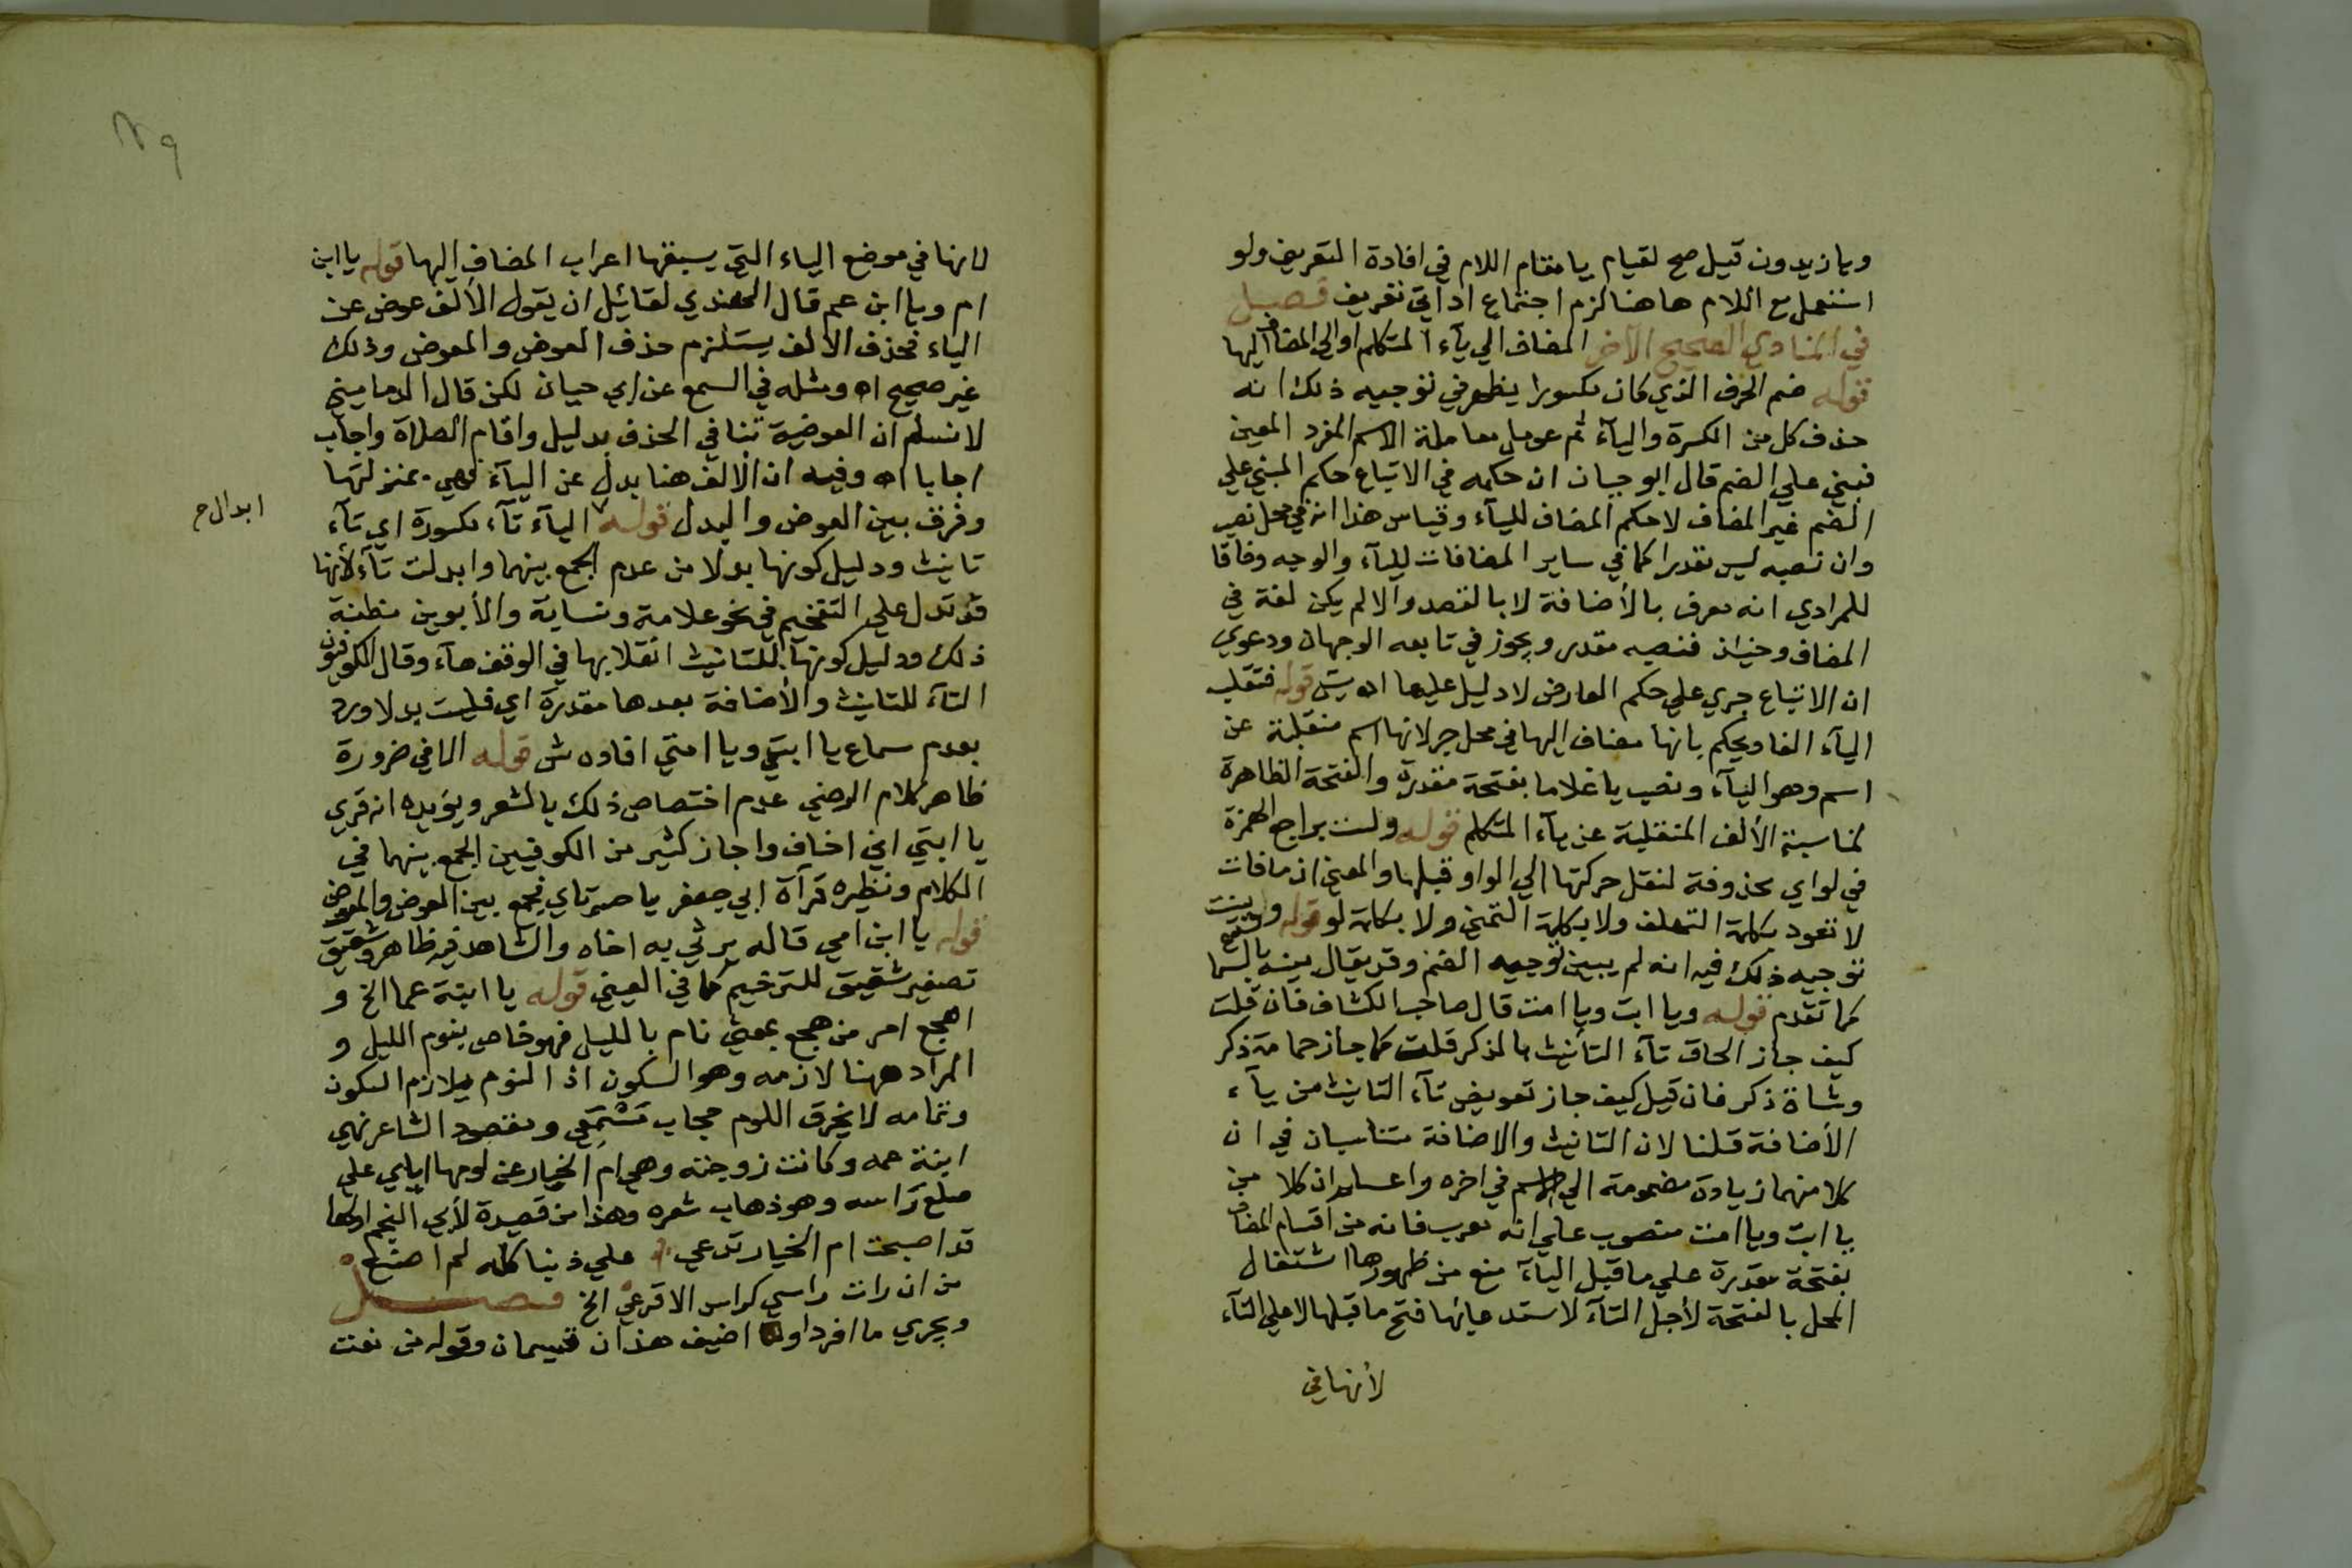 ويا زيدون قيل صح لقيام يا مقام اللام في افادة التعريف ولو
استعمل مع اللام هاهنا لزم اجتماع اداتي تعريف فصل
في المنادي الصحيح الآخر المضاف الي يآء المتكلم او الى المضاف اليها
قوله ضم الحرف الذي كان مكسورا يظهر في توجيه ذلك انه
حذف كل من الكسرة واليآء ثم عومل معاملة الاسم المفرد المعين
فبني علي الضم قال ابو حيان ان حكمه في الاتباع حكم المبني علي
الضم غير المضاف لا حكم المضاف لليآء وقياس هذا انه في محل نصب
وان نصبه ليس مقدرا كما في ساير المضافات لليآء والوجه وفاقا
للمرادي انه معرف بالأضافة لا بالقصد والا لم يكن لغة في
المضاف وحينئذ فنصبه مقدر ويجوز في تابعه الوجهان ودعوي
ان الاتباع جري علي حكم العارض لا دليل عليها اه يس قوله فتقلب
اليآء الفا ويحكم بانها مضاف اليها في محل جر لانها اسم منقلبة عن
اسم وهو اليآء ونصب يا غلاما بفتحة مقدرة والفتحة الظاهرة
لمناسبة الألف المنقلبة عن يآء المتكلم قوله ولست براجع الهمزة
في لو اي محذوفة لنقل حركتها الي الواو قبلها والمعني ان ما فات
لا تعود بكلمة التهلف ولا بكلمة التمني ولا بكلمة لو قوله و
توجيه ذلك فيه انه لم يبين توجيه الضم وقد يقال بينه
كما تقدم قوله ويا ابت ويا امت قال صاحب الكشاف فان قلت
كيف جاز الحاق تآء التأنيث بالمذكر قلت كما جاز حمامة ذكر
وشاة ذكر فان قيل كيف جاز تعويض تآء التانيث من يآء
الأضافة قلنا لان التانيث والاضافة متناسبان في ان
كلا منهما زيادة مضمومة الي الاسم في اخره واعلم ان كلا من
يا ابت ويا امت منصوب علي انه معرب فانه من اقسام المضاف
بفتحة مقدرة علي ما قبل اليآء منع من ظهورها اشتغال
المحل بالفتحة لأجل التآء لاستدعائها فتح ما قبلها لا علي التآء
لأنها في
لانها في موضع الياء التي يسبقها اعراب المضاف اليها قوله يا ابن
ام ويا ابن عم قال الهندي لقائل ان يقول الألف عوض عن
الياء فحذف الألف يستلزم حذف العوض والمعوض وذلك
غير صحيح اه ومثله في السمع عن ابي حيان لكن قال الدماميني
لا نسلم ان العوضية تنافي الحذف بدليل واقام الصلاة واجاب
اجابا اه وفيه ان الألف هنا بدل عن اليآء فهي بمنزلتها
وفرق بين العوض والبدل قوله اليآء تآء مكسورة اي تآء
ابدال ح
تانيث ودليل كونها بدلا من عدم الجمع بينهما وابدلت تآء لأنها
قد تدل علي التفخيم في نحو علامة ونسابة والأبوين مظنة
ذلك ودليل كونها للتانيث انقلابها في الوقف هآء وقال الكوفيون
التآء للتانيث والأضافة بعدها مقدرة اي فليست بدلا ورد
بعدم سماع يا ابتي ويا امتي افاده ش قوله الا في ضرورة
ظاهر كلام الرضي عدم اختصاص ذلك بالشعر ويؤيده انه قري
يا ابتي اني اخاف واجاز كثير من الكوفيين الجمع بينهما في
الكلام ونظيره قرآءة ابي جعفر يا حسرتاي فجمع بين العوض والمعوض
قوله يا ابن امي قاله يرثي به اخاه والشاهد فيه ظاهر وشقيق
تصغير شقيق للترخيم كما في العيني قوله يا ابنة عما الخ و
اهجع امر من هجع بمعني نام بالليل فهو خاص بنوم الليل و
المراد ههنا لازمه وهو السكون اذ النوم يلازم السكون
وتمامه لا يخرق اللوم حجاب مَسْمَعِي ومقصود الشاعر نهي
ابنة عمه وكانت زوجته وهي ام الخيار عن لومها اياي علي
صلع رأسه وهو ذهاب شعره وهذا من قصيدة لأبي النجم اولها
قد اصبحت ام الخيار تدعي علي ذنبا كله لم اصنع
من ان رات راسي كراس الاقرعِ الخ فصل
ويجري ما افرد او اضيف هذان قسيمان وقوله من نعت